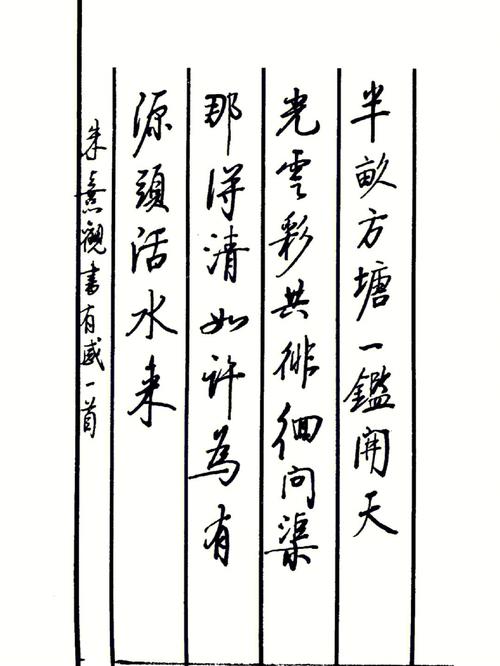 半畝方塘一鑑開天
光雲彩共徘徊問渠
那得清如許為有
源頭活水来
朱熹觀書有感一首